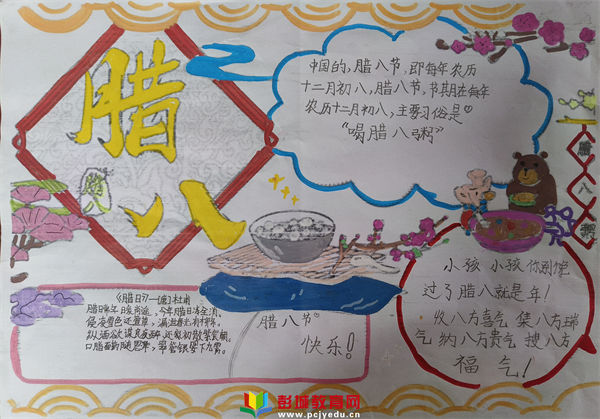 腊
八
腊八
中国的，腊八节，即每年农历
十二月初八，腊八节，节期在每年
农历十二月初八，主要习俗是
“喝腊八粥”
腊
八
粥
《腊日》杜甫
腊日常年暖尚遥，今年腊日冻全消。
侵凌雪色还萱草，漏泄春光有柳条。
纵酒欲谋良夜醉，还家初散紫宸朝。
口脂面药随恩泽，翠管银罂下九霄。
腊八节
快乐！
小孩小孩你别馋
过了腊八就是年！
收八方喜气 集八方瑞
气 纳八方贵气 搜八方
福气！
彭城教育网
www.pcjyedu.cn